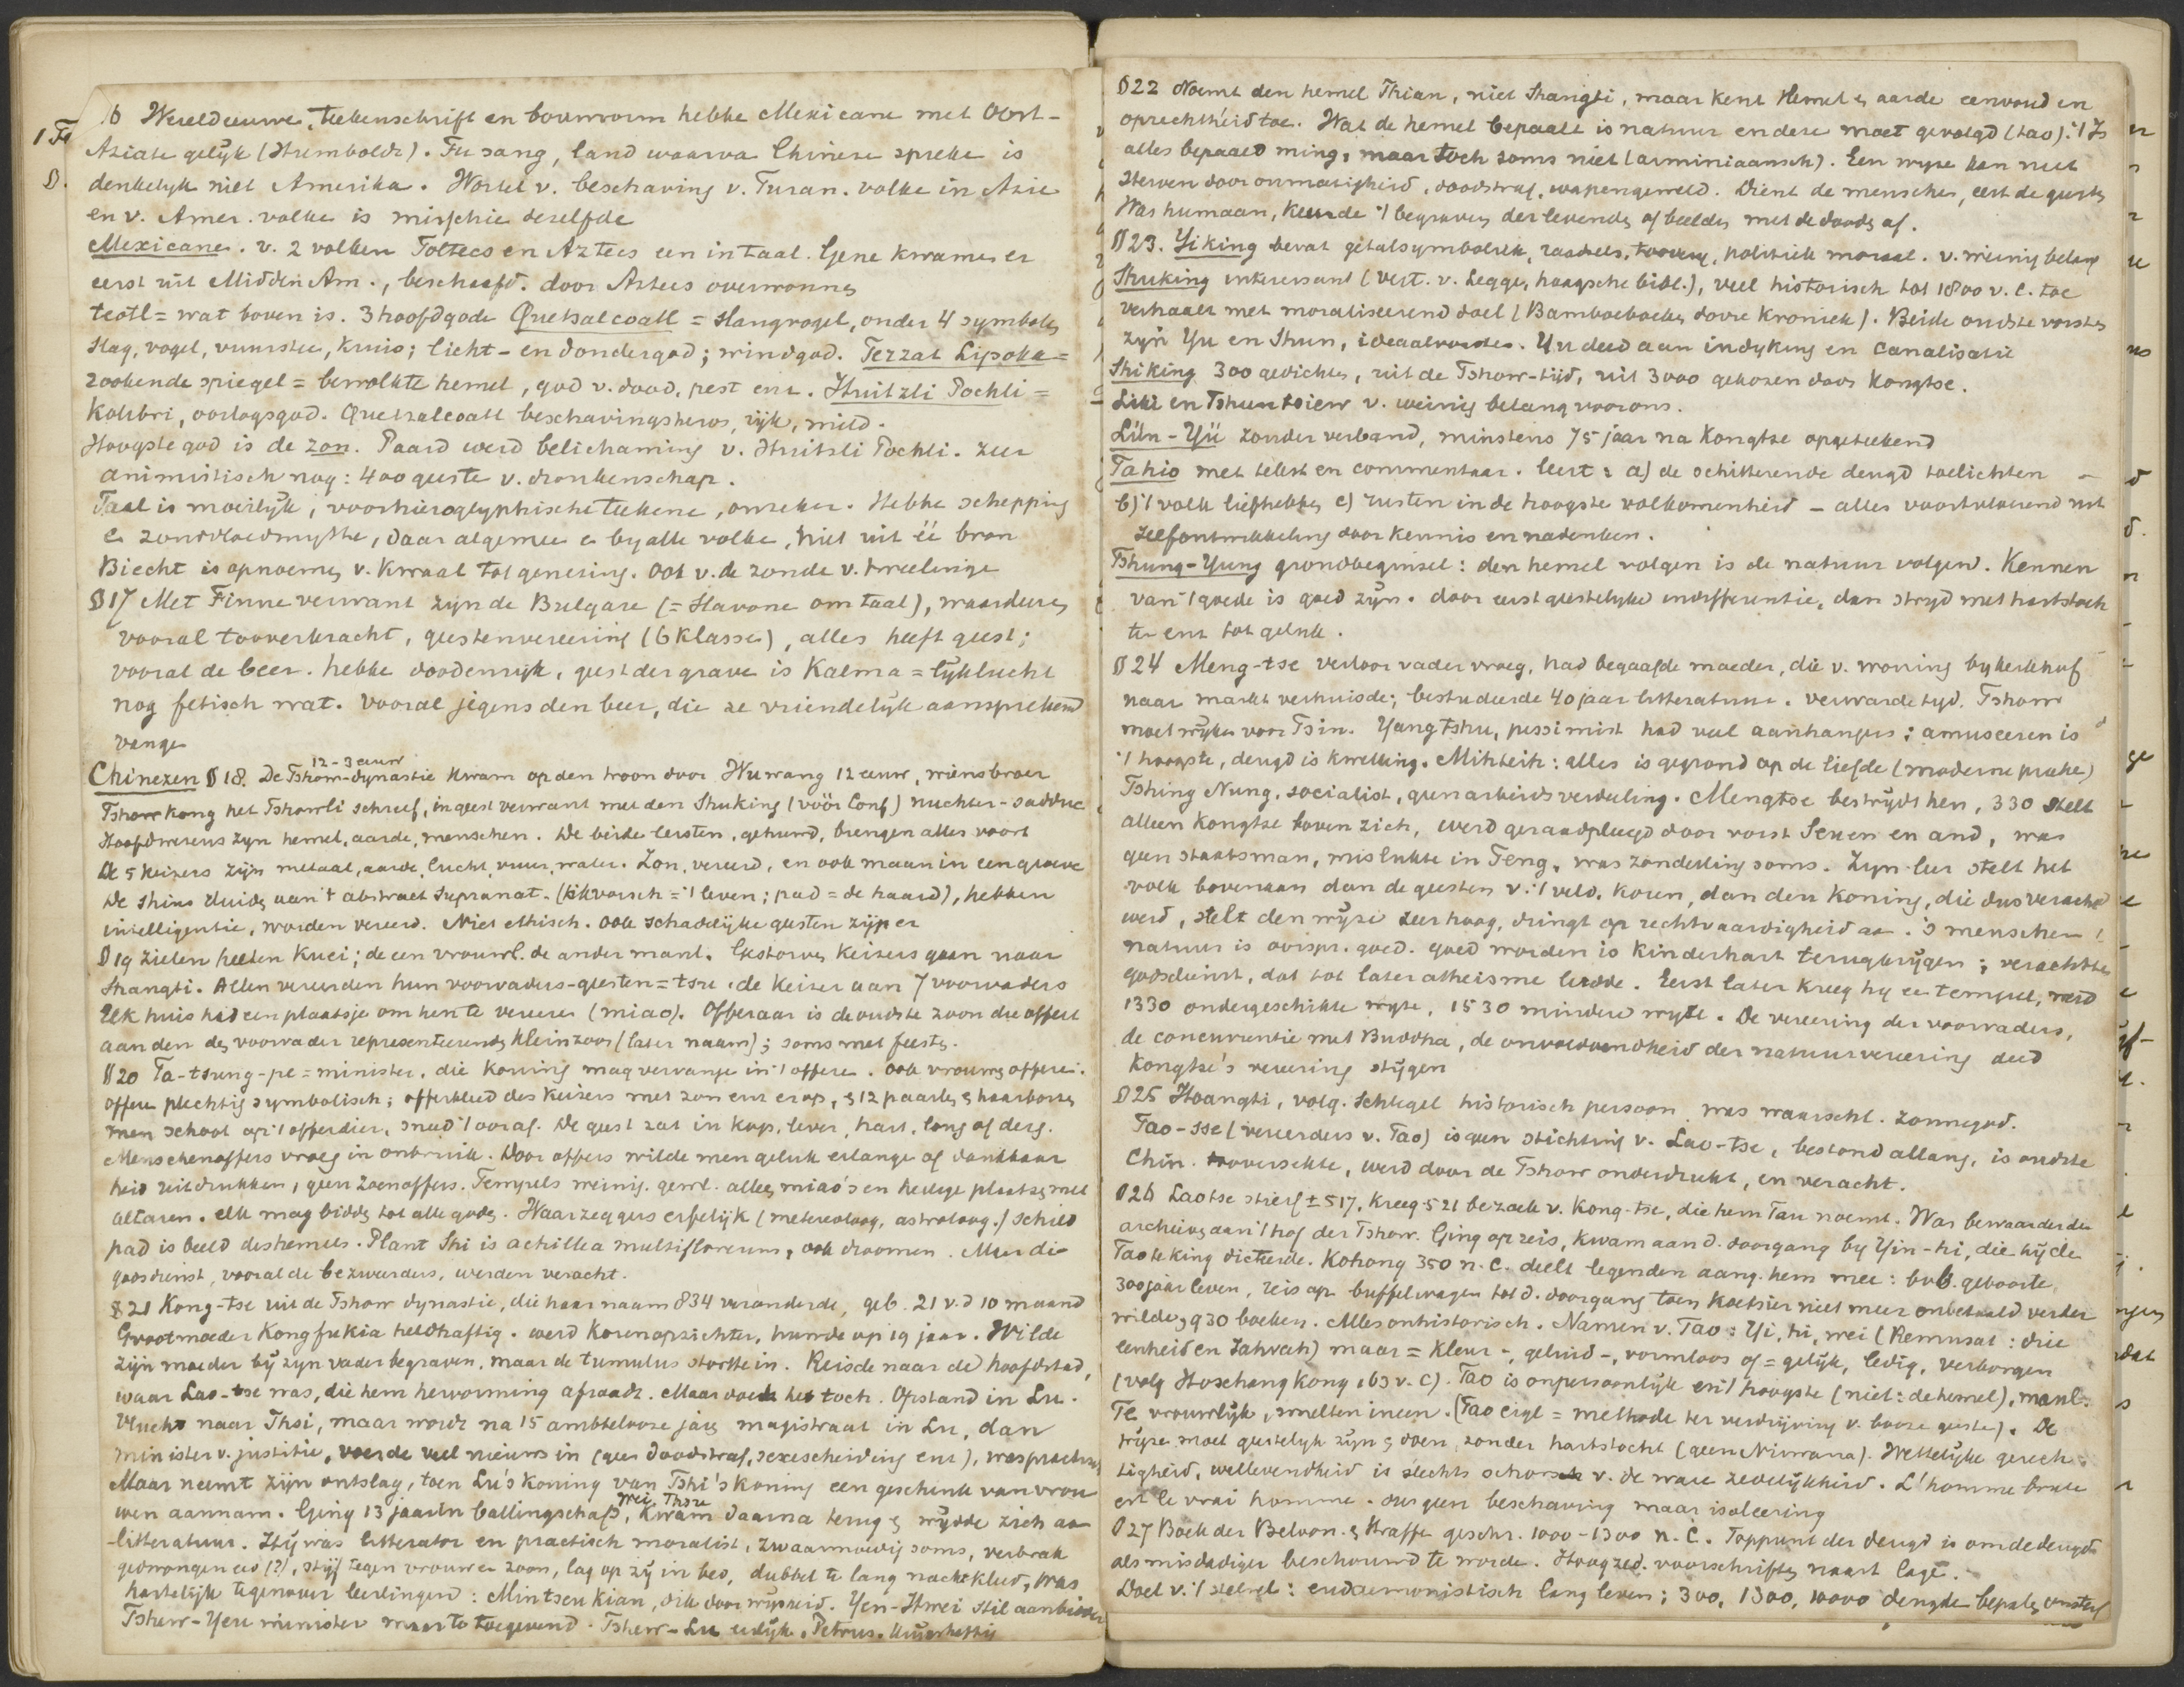 16 Wereldeeuwe, teekenschrift en bouwvorm hebbe Mexicane met Oost-
Aziate gelijk (Humboldt). Fu sang, land waarva Chineze spreke is
denkelyk niet Amerika. Wortel v. beschaving v. Turan. volke in Azie
en v. Amer. volke is misschie dezelfde
Mexicanen. v. 2 volken Toltecs en Aztecs een in taal. Gene kwamen er
eerst uit Midden Am., beschaafd. door Aztecs overwonnen
teotl = wat boven is. 3 hoofdgode Quetsalcoatl = slangvogel, onder 4 symbolen
slag, vogel, vuurstee, kruis; licht- en dondergod; windgod. Tezzat Lipoka =
rookende spiegel = bewolkte hemel, god v. dood, pest enz. Huitzli Pochli =
Kolibri, oorlogsgod. Quetsalcoatl beschavingsheros, rijk, mild.
Hoogste god is de zon. Paard werd belichaming v. Huitzli Pochli. Zeer
animistisch nog: 400 geeste v. dronkenschap.
Taal is moeilyk, voorhieroglyphische teekene, onzeker. Hebbe schepping
e zondvloedmythe, daar algemee e by alle volke, niet uit éé bron
Biecht is opnoemen v. kwaal tot genezing. Ook v. de zonde v. tweelinge
§17 Met Finne verwant zijn de Bulgare (= Slavone om taal), waardeeren
vooral tooverkracht, geestenvereering (6 klassen), alles heeft geest;
vooral de beer. hebbe doodenrijk, geest der grave is Kalma = lijklucht
nog fetisch wat. Vooral jegens den beer, die ze vriendelijk aansprekend
vange
12-3 eeuw
Chinezen §18. De Tshow-dynastie kwam op den troon door Wuwang 12 eeuw, wiens broer
Tshow kong het Tshowli schreef, in geest verwant met den Shuking (vóór Conf) nuchter-sadduc
Hoofdwezens zyn hemel, aarde, menschen. De beide eersten, gehuwd, brengen alles voort
De 5 keizers zijn metaal, aarde, lucht, vuur, water. Zon, vereerd, en ook maan in een groeve
De shins duiden aan 't abstract supranat. (kikvorsch = 't leven; pad = de haard), hebben
intelligentie, worden vereerd. Niet ethisch. Ook schadelijke geesten zijn er
§19 Zielen heeten Kuei; de een vrouwl. de ander manl. Gestorven keizers gaan naar
Shangti. Allen vereerden hun voorvaders-geesten = tsu, de keizer aan 7 voorvaders
Elk huis had een plaatsje om hen te vereeren (miao). Offeraar is de oudste zoon die offert
aan den de voorvader representeerende kleinzoon (later naam); soms met feesten.
§20 Ta-tsung-pe = minister, die koning mag vervange in 't offere. Ook vrouwen offere.
Offere plechtig symbolisch; offerkleed des keizers met zon enz erop, & 12 paarlen & haarborsen
Men schoot op 't offerdier, sneed 't oor af. De geest zat in kop, lever, hart, long of derg.
Menschenoffers vroeg in onbruik. Door offers wilde men geluk erlange of dankbaar
heid uitdrukken, geen zoenoffers. Tempels weinig. gewl. alleen miao's en heilige plaatsen met
altaren. Elk mag bidden tot alle goden. Waarzeggers erfelijk (meteoroloog, astroloog.) schild
pad is beeld des hemels. Plant Shi is achillea multiflorum, ook droomen. Maar die
godsdienst, vooral de bezweerders, werden veracht.
§21 Kong-tse uit de Tshow dynastie, die haar naam 834 veranderde, geb. 21 v.d 10 maand
Grootmoeder Kongfukia heldhaftig. werd korenopzichter, huwde op 19 jaar. Wilde
zijn moeder bij zyn vader begraven, maar de tumulus stortte in. Reisde naar de hoofdstad,
waar Lao-tse was, die hem hervorming afraadt. Maar doet het toch. Opstand in Lu.
Vlucht naar Thsi, maar wordt na 15 ambtelooze jaren magistraat in Lu, dan
minister v. justitie, voerde veel nieuws in (geen doodstraf, sexescheiding enz),
Maar neemt zijn ontslag, toen Lu's koning van Tshi's koning een geschenk van vrou
wen aannam. Ging 13 jaar in ballingschap, Wei, Thsu kwam daarna terug & wijdde zich aa
litteratuur. Hij was litterator en practisch moralist, zwaarmoedig soms, verbrak
gedwongen eed (?), stijf tegen vrouw en zoon, lag op zij in bed, dubbel te lang nachtkleed, was
hartelijk tegenover leerlingen: Mintseu Kian, dik door wijsheid. Yen-Hwei stil aanbidder
Tshow-Yeu minister maar te toegevend. Tshew-Lu eerlijk. Petrus.
§22 Noemt den hemel Thian, niet Shangti, maar kent Hemel & aarde eenvoud en
oprechtheid toe. Wat de hemel bepaalt is natuur en deze moet gevolgd (tao). 't Is
alles bepaald ming, maar toch soms niet (arminiaansch). Een wyze kan niet
sterven door onmatigheid, doodstraf, wapengeweld. Dient de menschen, eerst de geesten
Was humaan, keurde 't begraven der levenden of beelden met de dooden af.
§23. Yiking bevat getalsymboliek, raadsels, toovery, politiek moraal. v. weinig belang
Shuking interessant (vert. v. Legge, haagsche bibl.), veel historisch tot 1800 v. C. toe
verhaalt met moraliseerend doel (Bamboeboeken dorre kroniek). Beide oudste vorsten
zyn Yu en Shun, ideaalvorsten. Yu deed aan indyking en canalisatie
Shiking 300 gedichten, uit de Tshow-tijd, uit 3000 gekozen door Kongtse.
Liki en Tshuntsiew v. weinig belang voor ons.
Lün-Yü zonder verband, minstens 75 jaar na Kongtse opgeteekend
Tahio met tekst en commentaar. leert: a) de schitterende deugd toelichten
b) 't volk liefhebben c) rusten in de hoogste volkomenheid – alles voortvloeiend uit
zelfontwikkeling door kennis en nadenken.
Tshung-Yung grondbeginsel: den hemel volgen is de natuur volgen. Kennen
van 't goede is goed zijn. door eerst geestelyke indifferentie, dan stryd met hartstoch
ten enz tot geluk.
§24 Meng-tse verloor vader vroeg, had begaafde moeder, die v. woning by kerkhof
naar markt verhuisde; bestudeerde 40 jaar litteratuur. verwarde tyd. Tshow
moet wyken voor Tsin. Yang Tshu, pessimist had veel aanhangers; amuseeren is
't hoogste, deugd is kwelling. Mihteih: alles is gegrond op de liefde (moderne preeke)
Tshing Nung, socialist, geen arbeidsverdeeling. Mengtse bestrydt hen, 330 stelt
alleen Kongtse boven zich, werd geraadpleegd door vorst Seuen en and, was
geen staatsman, mislukte in Teng, was zonderling soms. Zyn leer stelt het
volk bovenaan dan de geesten v. 't veld, koren, dan den koning, die dus veracht
werd, stelt den wijze zeer hoog, dringt op rechtvaardigheid aa. 's menschen
natuur is oorspr. goed. goed worden is kinderhart terugkrijgen; verachtte
godsdienst, dat tot later atheisme leidde. Eerst later kreeg hij ee tempel, werd
1330 ondergeschikte wyze, 1530 mindere wyze. De vereering der voorvaders,
de concurrentie met Buddha, de onvoldoendheid der natuurvereering deed
Kongtse's vereering stijgen
§25 Hoangti, volg. Schlegel historisch persoon, was waarschl. zonnegod.
Tao-sse (vereerders v. Tao) is geen stichting v. Lao-tse, bestond allang, is oudste
Chin. tooversekte, werd door de Tshow onderdrukt, en veracht.
§26 Laotse stierf ± 517, kreeg 521 bezoek v. Kong-tse, die hem Tan noemt. Was bewaarder der
archieven aan 't hof der Tshow. Ging op reis, kwam aan d. doorgang by Yin-hi, die hij de
Tao te king dicteerde. Kohong 350 n. C. deelt legenden aang. hem mee: bvb. geboorte
300 jaar leven, reis op buffelwagen tot d. doorgang toen koetsier niet meer onbetaald verder
wilde, 930 boeken. Alles onhistorisch. Namen v. Tao: Yi, hi, wei (Remusat: drie
eenheid en Jahveh) maar = kleur-, geluid-, vormloos of = gelijk, ledig, verborgen
(volg Hoschang Kong 163 v. C). Tao is onpersoonlijk en 't hoogste (niet: de hemel), manl.
Te vrouwlijk, smelten ineen. (Tao eigl = methode ter verdrijving v. booze geesten). De
wyze moet geestelyk zijn & doen, zonder hartstocht (geen Nirwana). Wettelijke gerech
tigheid, wellevendheid is slechts schors v. de ware zedelijkheid. L'homme brute
est le vrai homme. dus geen beschaving maar isoleering
§27 Boek der Beloon. & Straffe geschr. 1000-1300 n. C. Toppunt der deugd is om de deugd
als misdadiger beschouwd te worde. Hoog zed. voorschriften naast lage.
Doel v. 't stelsel: eudaemonistisch lang leven; 300, 1300, 10000 deugde bepalen